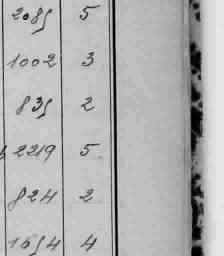 2085 5
1002 3
835 2
2219 5
824 2
1654 4